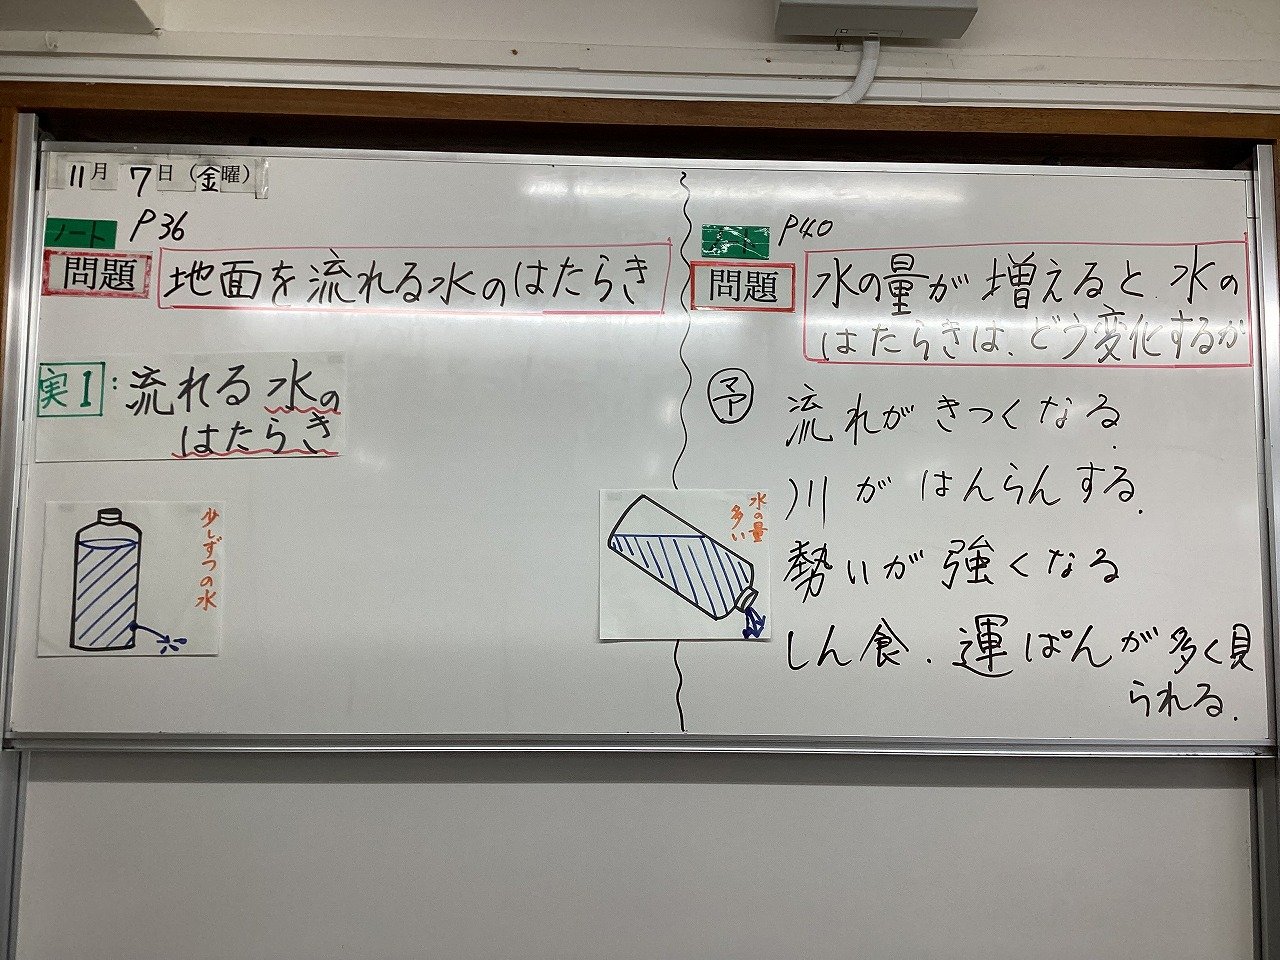 11月 7日(金曜)
ノート P36
問題 地面を流れる水のはたらき
実1:流れる水の
はたらき
少しずつの水
ノート P40
問題 水の量が増えると水の
はたらきは、どう変化するか
予 流れがきつくなる.
川がはんらんする.
勢いが強くなる
しん食.運ぱんが多く見
られる.
水の量
多い